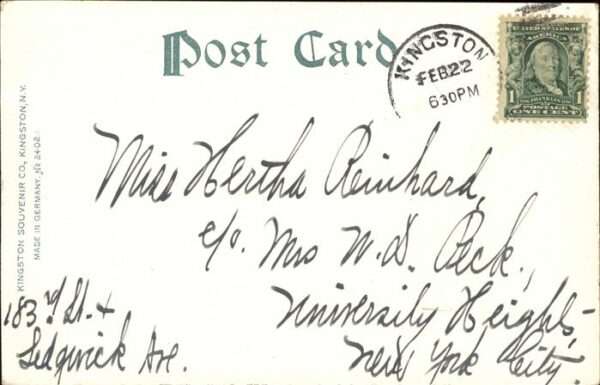 Post Card
KINGSTON
FEB 22
630PM
UNITED STATES OF AMERICA
1 1
POSTAGE
ONE CENT
KINGSTON SOUVENIR CO., KINGSTON, N.Y.
MADE IN GERMANY. No 2402
Miss Hertha Reinhard,
c/o. Mrs W. D. Peck.,
University Heights,
New York City.
183rd St. &
Sedgwick Ave.